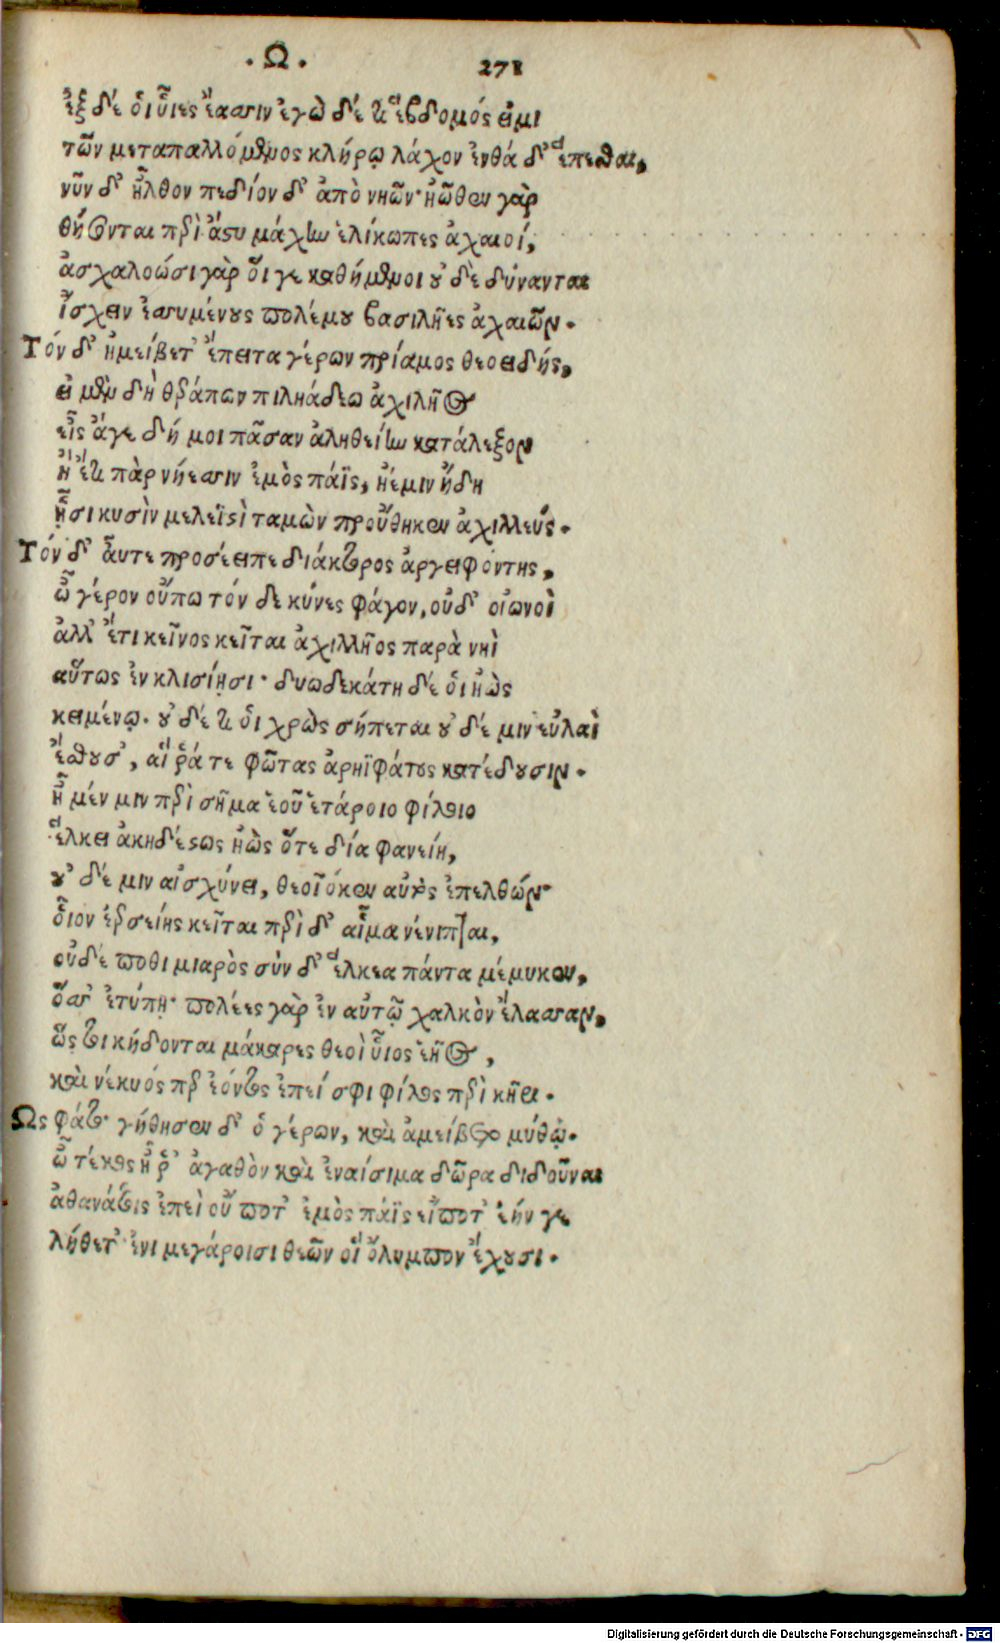 · Ω ·
271
ἓξ δέ οἱ υἷες ἔασιν ἐγὼ δέ οἱ ἕβδομός εἰμι
τῶν μεταπαλλόμενος κλήρῳ λάχον ἐνθά δ' ἕπεσθαι,
νῦν δ' ἦλθον πεδίον δ' ἀπὸ νηῶν· ἠῶθεν γὰρ
θήσονται περὶ ἄςυ μάχην ἑλίκωπες ἀχαιοί,
ἀσχαλοώσι γὰρ οἵ γε καθήμενοι οὐ δὲ δύνανται
ἴσχειν ἐσσυμένους πολέμου βασιλῆες ἀχαιῶν.
Τόν δ' ἠμείβετ' ἔπειτα γέρων πρίαμος θεοειδής,
εἰ μὲν δὴ θεράπων πιληάδεω ἀχιλῆος
εἶς ἄγε δή μοι πᾶσαν ἀληθείην κατάλεξον
ἢ ἔτι πὰρ νήεσσιν ἐμὸς πάϊς, ἠέ μιν ἤδη
ᾗσι κυσὶν μελεϊςὶ ταμὼν προὔθηκεν ἀχιλλεύς.
Τόν δ' αὖτε προσέειπε διάκτορος ἀργειφόντης,
ὦ γέρον οὔπω τόν δε κύνες φάγον, οὐδ' οἰωνοὶ
ἀλλ' ἔτι κεῖνος κεῖται ἀχιλλῆος παρὰ νηὶ
αὕτως ἐν κλισίῃσι· δυωδεκάτη δέ οἱ ἠὼς
κειμένῳ. οὐ δέ τι οἱ χρὼς σήπεται οὐ δέ μιν εὐλαὶ
ἔσθουσ', αἵ ῥά τε φῶτας ἀρηϊφάτους κατέδουσιν.
ἦ μέν μιν περὶ σῆμα ἑοῦ ἑτάροιο φίλοιο
ἕλκει ἀκηδέςως ἠὼς ὅτε δία φανείη,
οὐ δέ μιν αἰσχύνει, θεοῖό κεν αὐτὸς ἐπελθών
οἷον ἐερσείης κεῖται περὶ δ' αἷμα νένιπται,
οὐδέ ποθι μιαρὸς σύν δ' ἕλκεα πάντα μέμυκεν,
ὅσσ' ἐτύπη· πολέες γὰρ ἐν αὐτῷ χαλκὸν ἔλασσαν,
ὥς τοι κήδονται μάκαρες θεοὶ υἷος ἑῆος,
καὶ νέκυός περ ἐόντος ἐπεί σφι φίλος περὶ κῆρι.
Ως φάτο· γήθησεν δ' ὁ γέρων, καὶ ἀμείβετο μύθῳ.
ὦ τέκος ἦ ῥ' ἀγαθὸν καὶ ἐναίσιμα δῶρα διδοῦναι
ἀθανάτοις ἐπεὶ οὔ ποτ' ἐμὸς πάϊς εἴποτ' ἔην γε
λήθετ' ἐνι μεγάροισι θεῶν οἳ ὄλυμπον ἔχουσι.
Digitalisierung gefördert durch die Deutsche Forschungsgemeinschaft - DFG